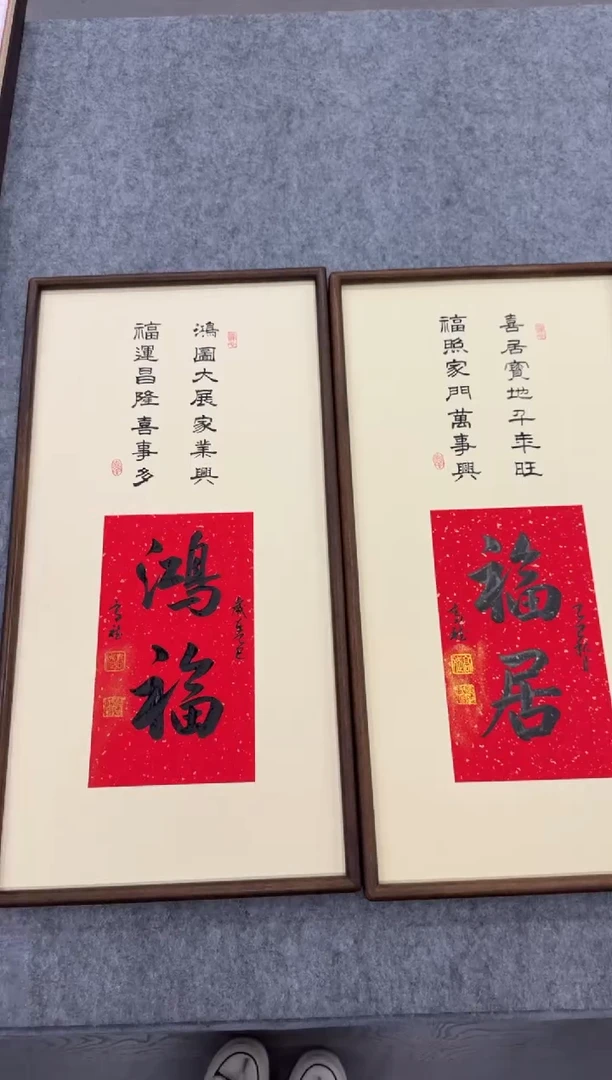 鴻圖大展家業興
福運昌隆喜事多
鴻福
喜居寶地千年旺
福照家門萬事興
福居